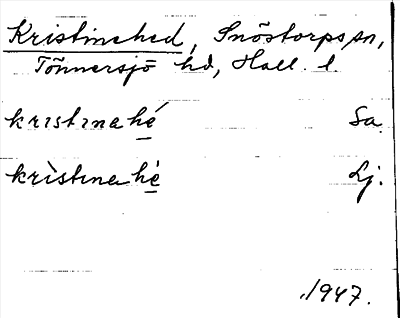 Kristinehed, Snöstorps sn,
Tönnersjö hd, Hall. l.
kristinahé Sa.
krìstinahè Lj.
1947.